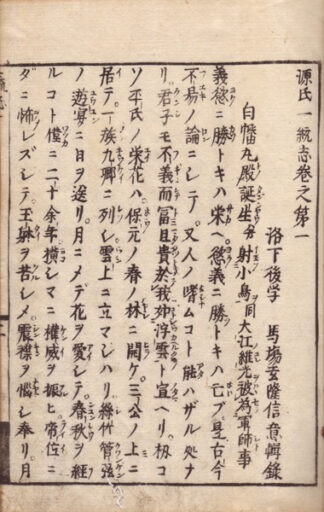 源氏一統志巻之第一
洛下後学 馬場玄隆信意輯録
白幡丸殿誕生并射小鳥同大江維光被為軍師事
義慾ニ勝トキハ栄ヘ慾義ニ勝トキハ亡ブ是古今
不易ノ論ニシテ又人ノ嗜ムコト能ハザル処ナ
リ君子モ不義而富且貴於我如浮雲ト宣ヘリ扨コ
ソ平氏ノ栄花ハ保元ノ春ノ林ニ開ケ三公ノ上ニ
居テ一族九卿ニ列シ雲上ニ立マジハリ絲竹管弦
ノ遊宴ニ日ヲ送リ月ニメデ花ヲ愛シテ春秋ヲ経
ルコト僅ニ二十余年横シマニ權威ヲ振ヒ帝位ニ
ダニ怖レズシテ王躰ヲ苦シメ震襟ヲ悩シ奉リ月